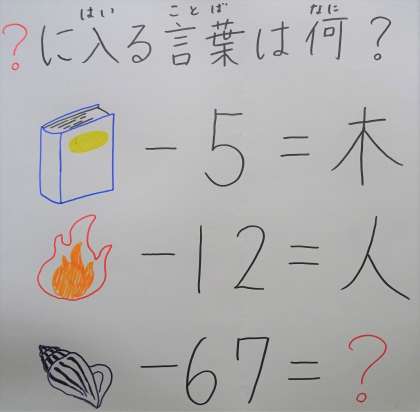 はい ことば なに
?に入る言葉は何?
-5=木
-12=人
-67=?